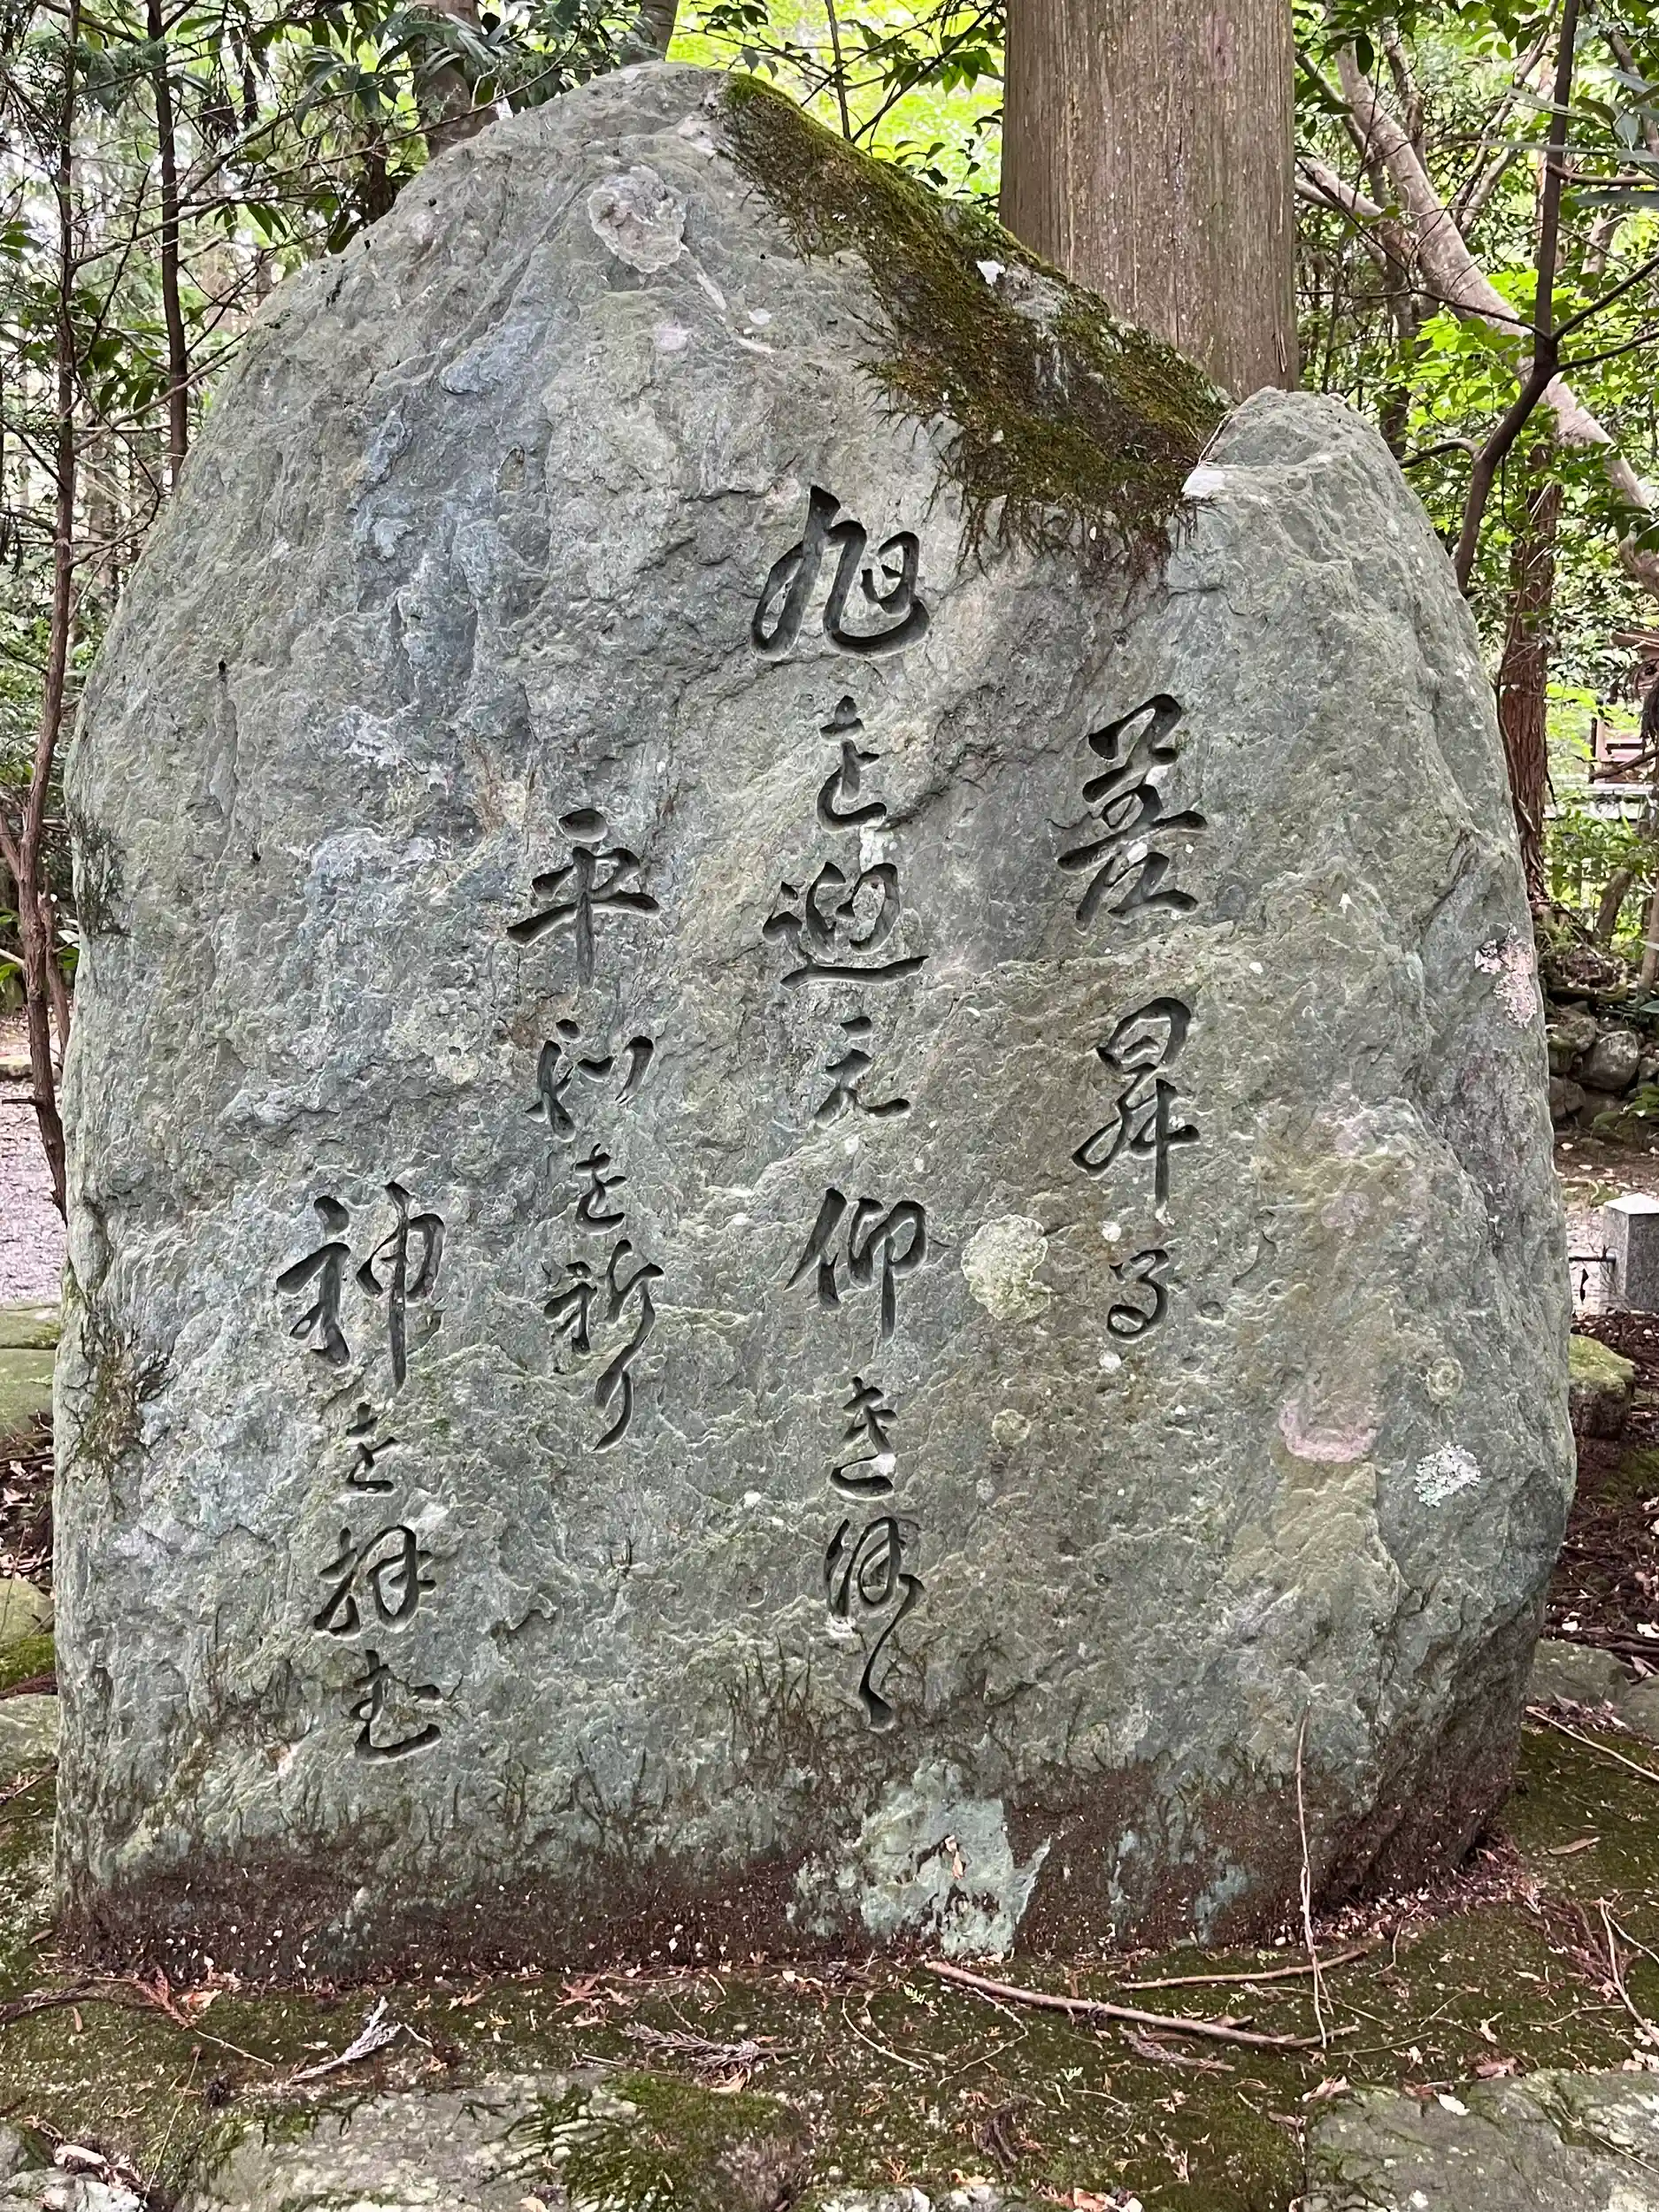 差昇る
旭を迎え仰き
平和を祈り
神を拝む